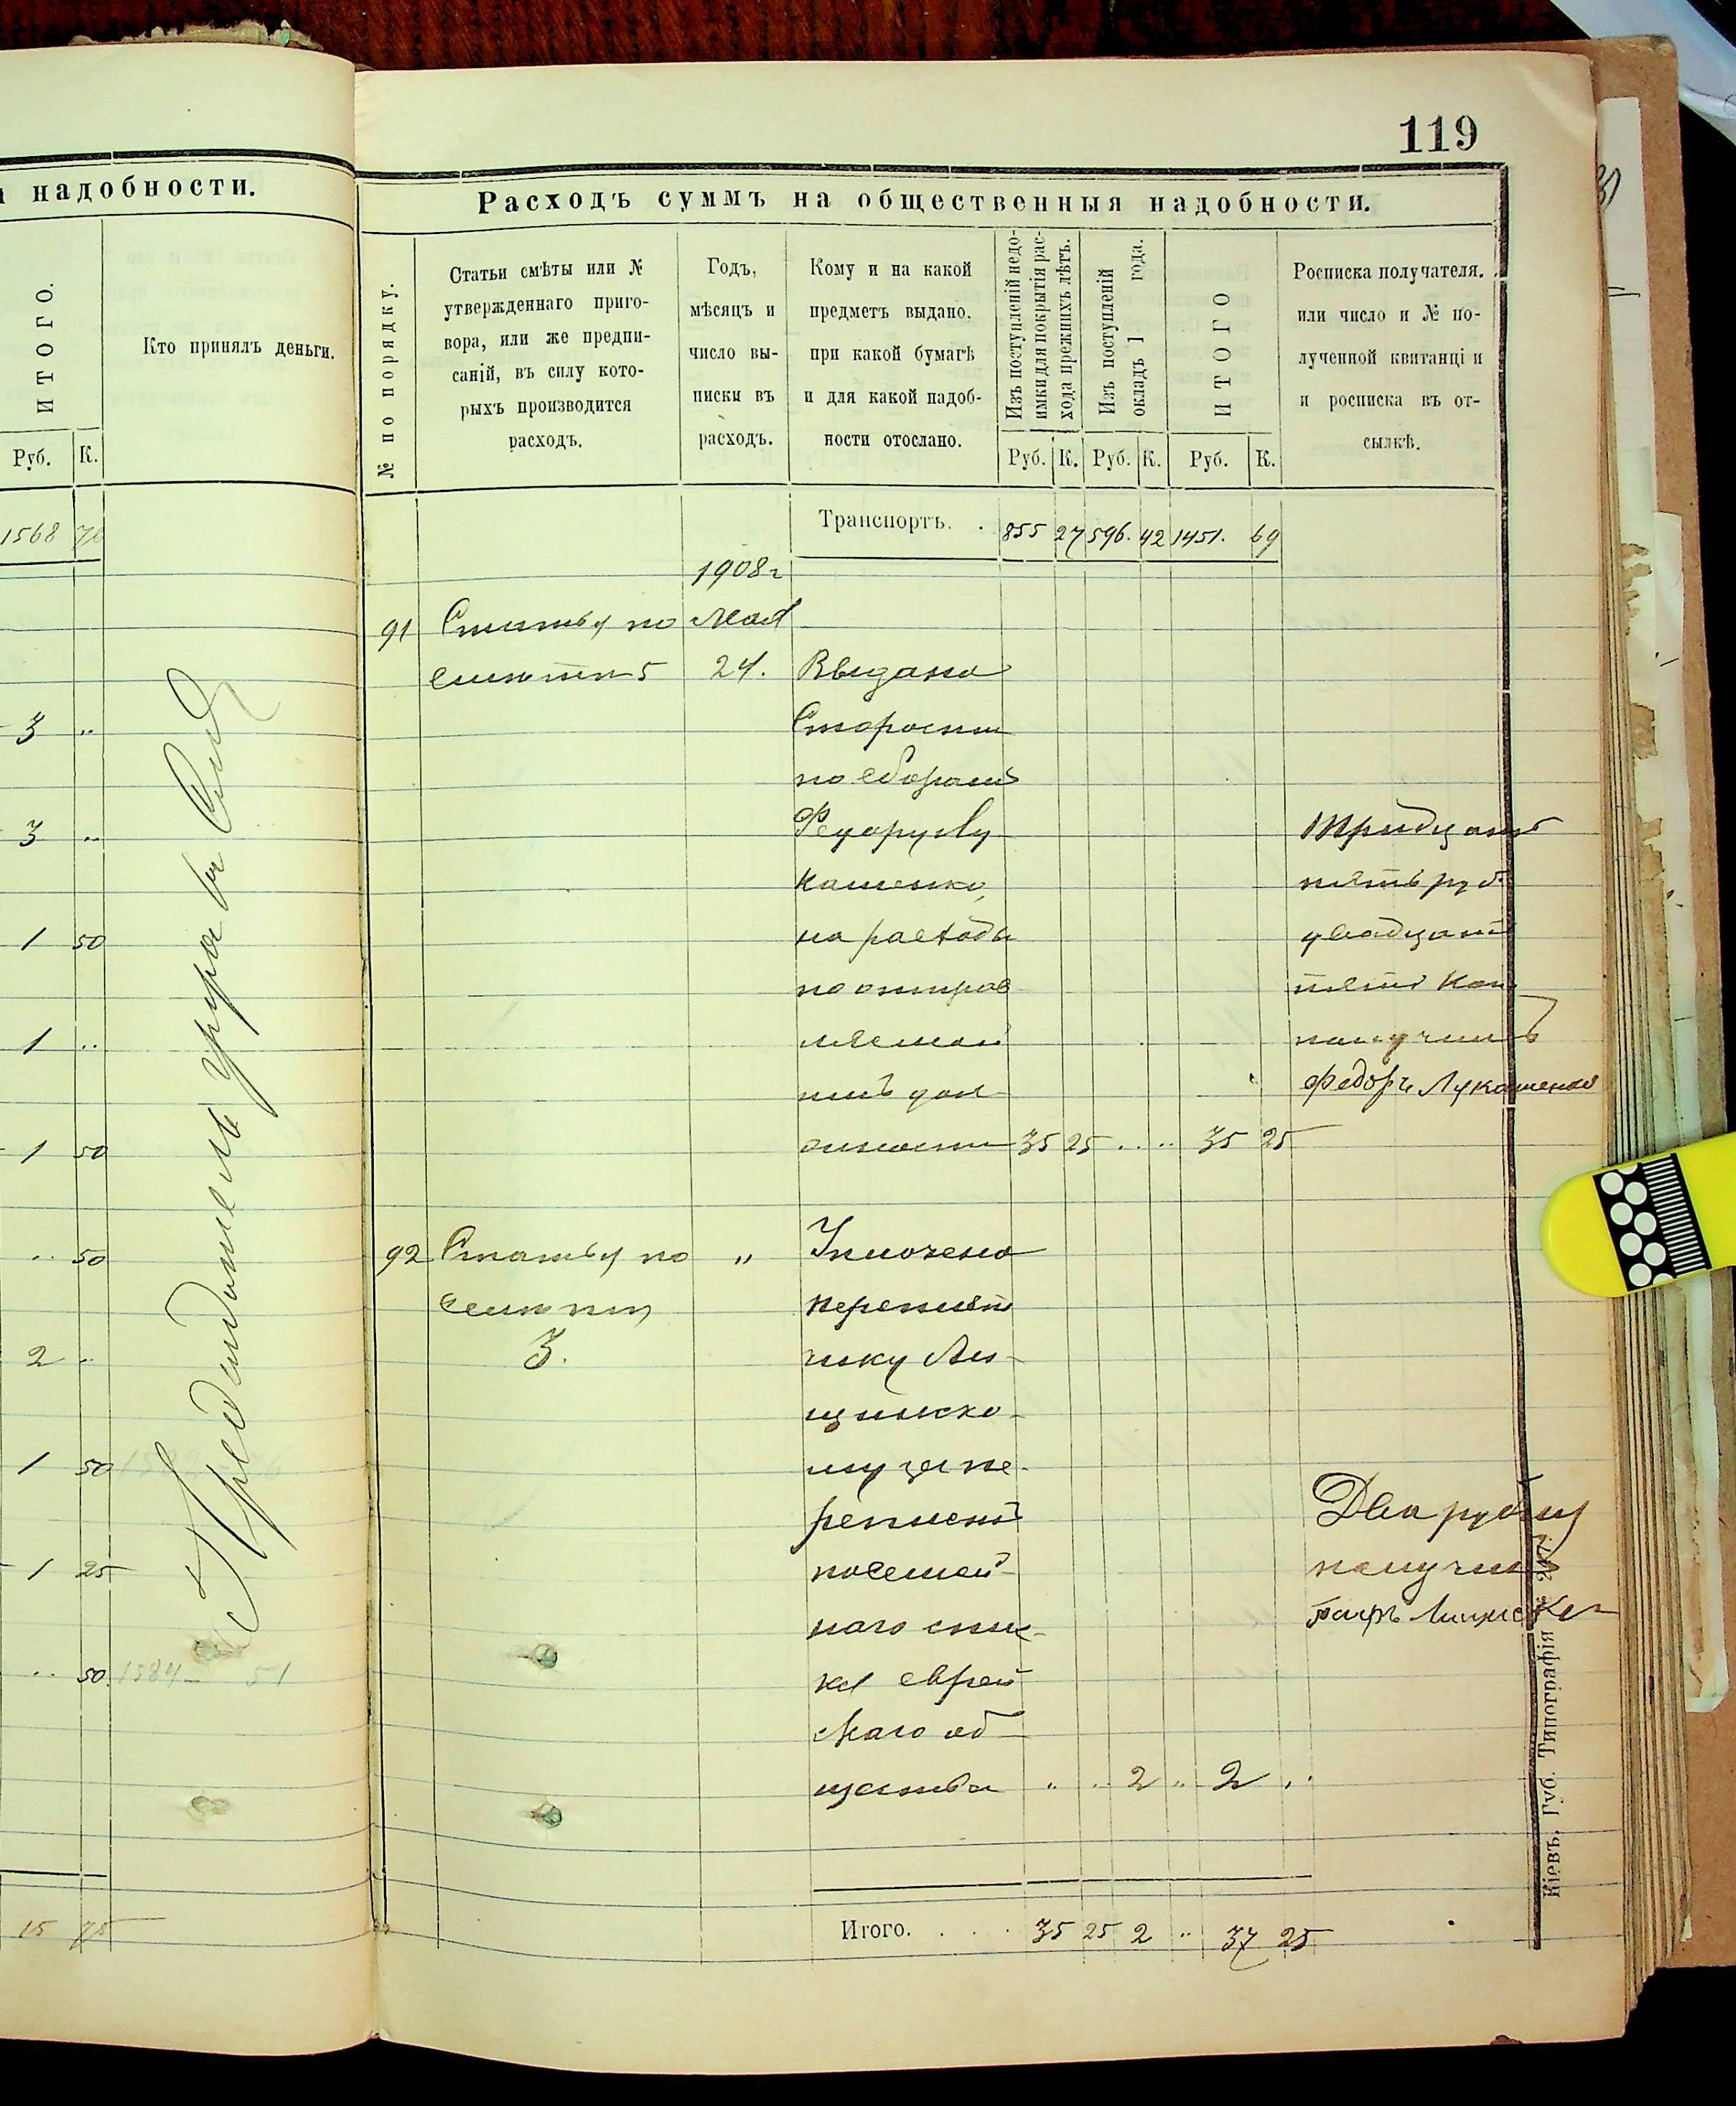 119
надобности.
ИТОГО.
Кто принялъ деньги.
Руб. К.
1568 70
3 ..
3 ..
1 50
1 ..
1 50
.. 50
2 ..
1 50
1 25
.. 50
1584 51
15 75
Расходъ суммъ на общественныя надобности.
№ по порядку.
Статьи смѣты или №
утвержденнаго приго-
вора, или же предпи-
саній, въ силу кото-
рыхъ производится
расходъ.
Годъ,
мѣсяцъ и
число вы-
писки въ
расходъ.
Кому и на какой
предметъ выдано.
при какой бумагѣ
и для какой надоб-
ности отослано.
Изъ поступленій недо-
имки для покрытія рас-
хода прежнихъ лѣтъ.
Изъ поступленій
окладъ 1 года.
ИТОГО
Росписка получателя.
или число и № по-
лученной квитанціи
и росписка въ от-
сылкѣ.
Руб. К. Руб. К. Руб. К.
Транспортъ. . 855 27 596. 42 1451. 69
1908 г
91 Статья по Мая
смѣтѣ 5 24. Выдано
Старостѣ
по сборамъ
Федору Лу-
кашенко,
на расходы
по отправ
ляемой
имъ дол-
жности 35 25 .. .. 35 25
Тридцать
пять руб.
двадцать
пять коп
получилъ
Федоръ Лукашенко
92 Статья по " Уплочено
смѣтѣ переплет
3. чику Ли-
щинско-
му за пе-
реплетъ
посемей-
наго спис-
ка еврей
скаго об-
щества .. .. 2 .. 2 ..
Два рубли
получилъ
Итого. . . . 35 25 2 .. 37 25
Кіевъ. Губ. Типографія № 247.